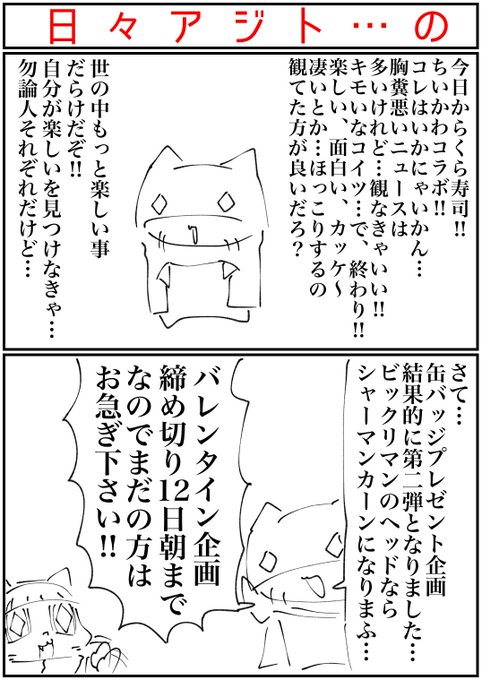 日々アジト…の
今日からくら寿司!!
ちいかわコラボ!!
コレはいかにゃいかん…
胸糞悪いニュースは
多いけれど…観なきゃいい!!
キモいなコイツ…で、終わり!!
楽しい、面白い、カッケ～
凄いとか…ほっこりするの
観てた方が良いだろ?
世の中もっと楽しい事
だらけだぞ!!
自分が楽しいを見つけなきゃ…
勿論人それぞれだけど…
さて…
缶バッジプレゼント企画
結果的に第二弾となりました…
ビックリマンのヘッドなら
シャーマンカーンになりまふ…
バレンタイン企画
締め切り12日朝まで
なのでまだの方は
お急ぎ下さい!!